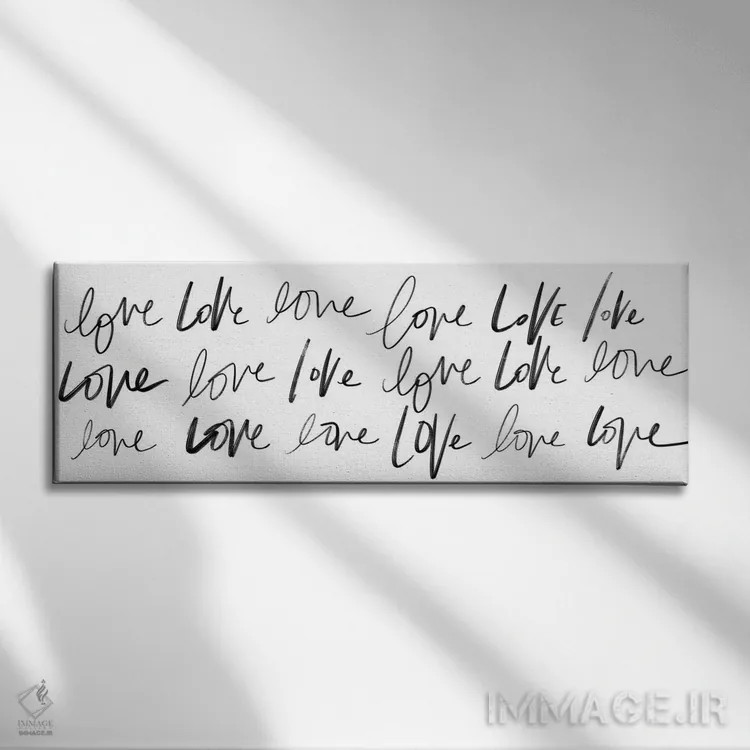 love LOVE love love LOVE love
LOVE love love love LOVE love
love LOVE love LOVE love love
IMMAGE
IMMAGE.IR
IMMAGE.IR